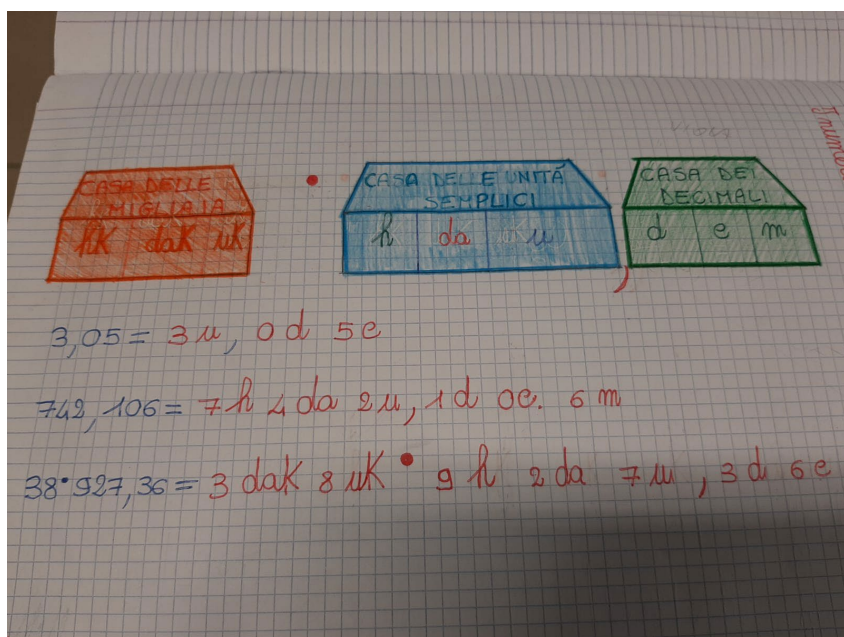 CASA DELLE MIGLIAIA
hK daK uK
•
CASA DELLE UNITÀ SEMPLICI
h da u
,
CASA DEI DECIMALI
d e m
3,05 = 3 u, 0 d 5 e
742,106 = 7 h 4 da 2 u, 1 d 0 e. 6 m
38•927,36 = 3 daK 8 uK • 9 h 2 da 7 u , 3 d 6 e